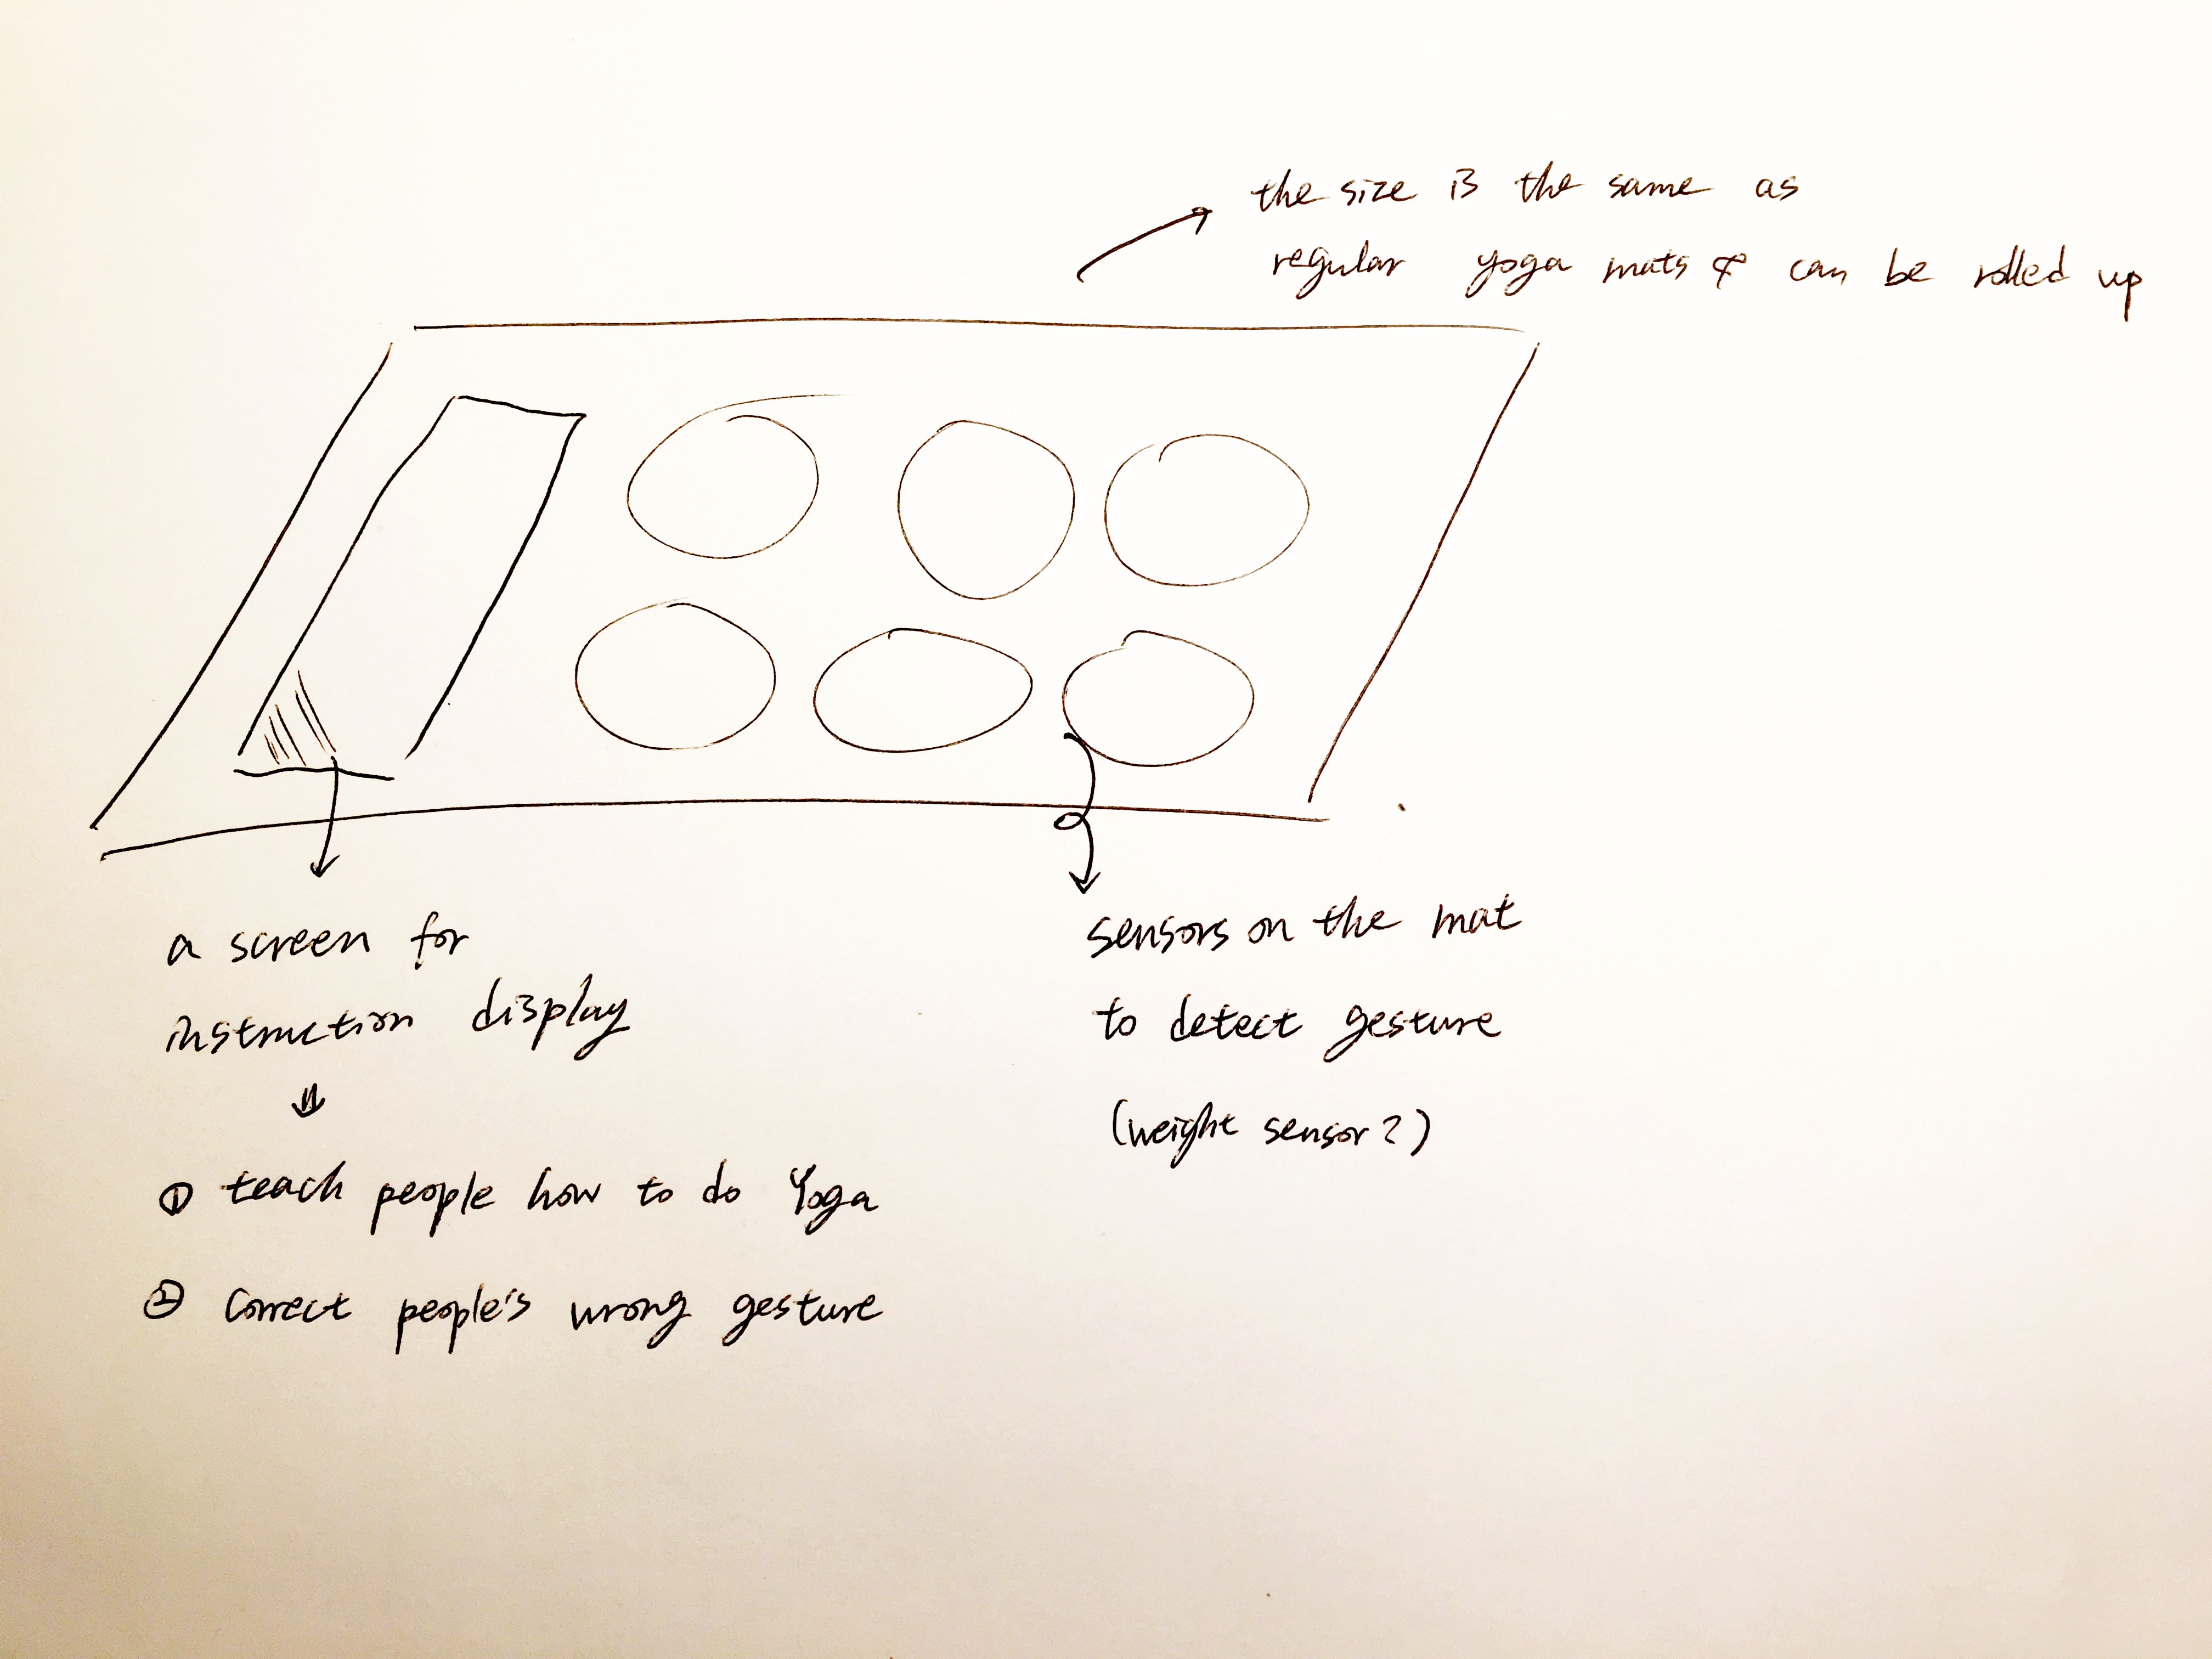 the size is the same as
regular yoga mats & can be rolled up
a screen for
instruction display
① teach people how to do Yoga
② correct people's wrong gesture
sensors on the mat
to detect gesture
(weight sensor?)